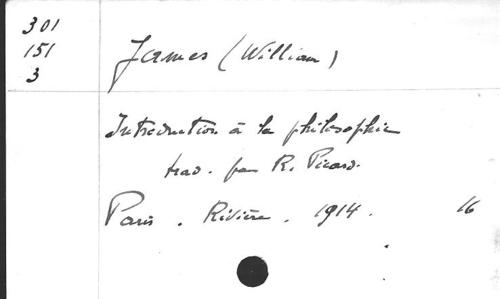 301
151
3
James (William)
Introduction à la philosophie
trad. par R. Picard.
Paris. Rivière. 1914. 16